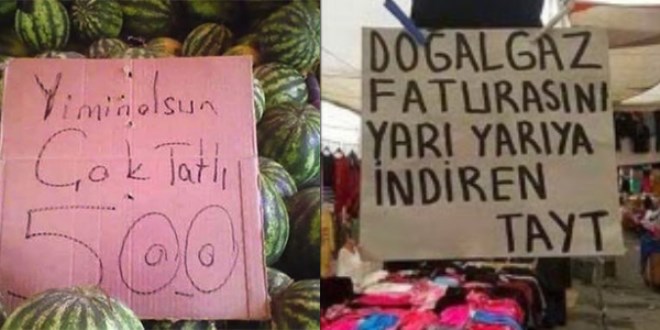 Yiminolsun
Çok Tatlı
500
DOĞALGAZ
FATURASINI
YARI YARIYA
İNDİREN
TAYT